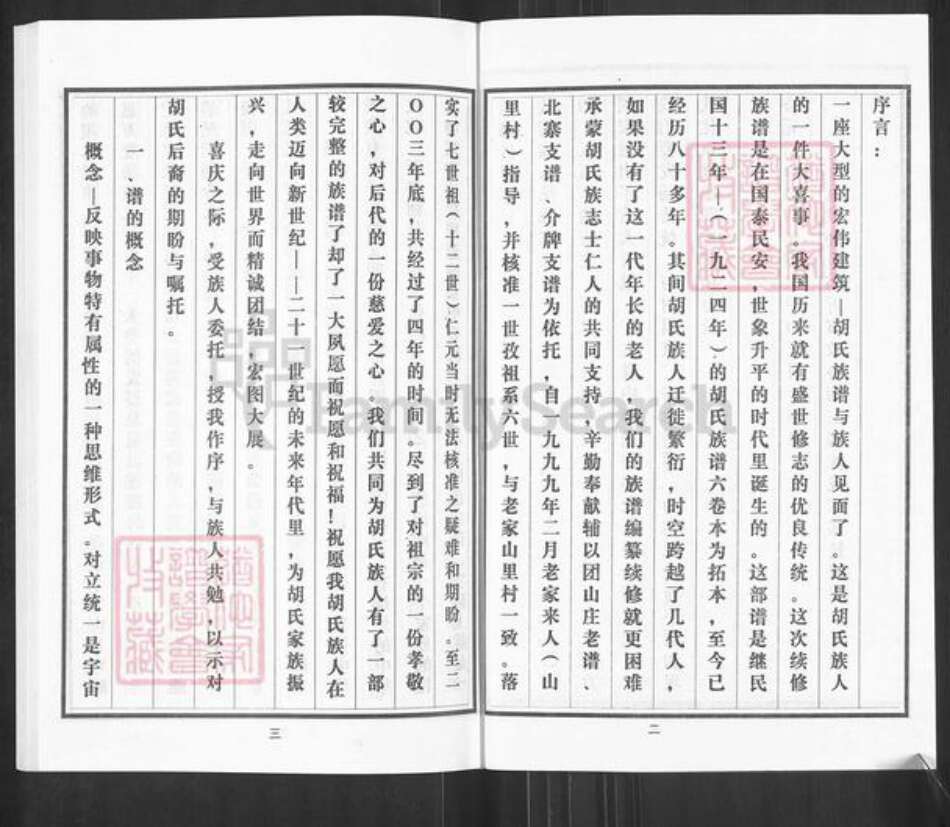 序言：
一座大型的宏伟建筑—胡氏族谱与族人见面了。这是胡氏族人
的一件大喜事。我国历来就有盛世修志的优良传统。这次续修
族谱是在国泰民安，世象升平的时代里诞生的。这部谱是继民
国十三年—（一九二四年）的胡氏族谱六卷本为拓本，至今已
经历八十多年。其间胡氏族人迁徙繁衍，时空跨越了几代人，
如果没有了这一代年长的老人，我们的族谱编纂续修就更困难
承蒙胡氏族志士仁人的共同支持，辛勤奉献辅以团山庄老谱、
北寨支谱、介牌支谱为依托，自一九九九年二月老家来人（山
里村）指导，并核准一世孜祖系六世，与老家山里村一致。落
二
实了七世祖（十二世）仁元当时无法核准之疑难和期盼。至二
OO三年底，共经过了四年的时间。尽到了对祖宗的一份孝敬
之心，对后代的一份慈爱之心。我们共同为胡氏族人有了一部
较完整的族谱了却了一大夙愿而祝愿和祝福！祝愿我胡氏族人在
人类迈向新世纪——二十一世纪的未来年代里，为胡氏家族振
兴，走向世界而精诚团结，宏图大展。
喜庆之际，受族人委托，授我作序，与族人共勉，以示对
胡氏后裔的期盼与嘱托。
一、谱的概念
概念—反映事物特有属性的一种思维形式。对立统一是宇宙
三
FamilySearch